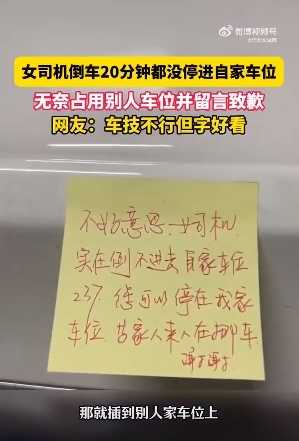 微博视频号
女司机倒车20分钟都没停进自家车位
无奈占用别人车位并留言致歉
网友：车技不行但字好看
不好意思.女司机
实在倒不进去自家车位
237. 您可以停在我家
车位. 古家人来人在挪车
谢了谢了.
那就插到别人家车位上